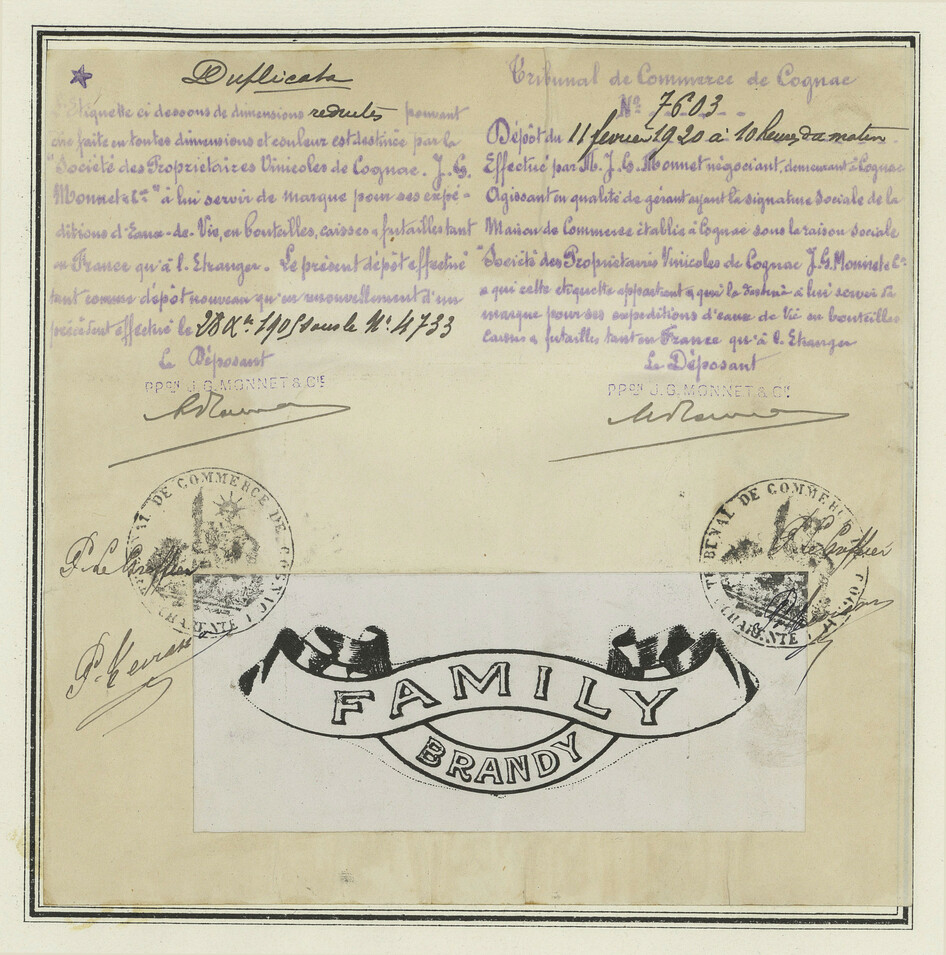 Duplicata
L'Etiquette ci dessous de dimensions reduites pouvant
être faite en toutes dimensions et couleur est destinée par la
"Société des Propriétaires Vinicoles de Cognac. J. G.
Monnet & Cie" à lui servir de marque pour ses expé-
ditions d'Eaux-de-Vie, en bouteilles, caisses & futailles tant
en France qu'à l'Etranger. Le présent dépôt effectué
tant comme dépôt nouveau qu'en renouvellement d'un
précédent effectué le 28 Xbre 1905 sous le No 4733
Le Déposant
PPON J.G. MONNET & CIE
Tribunal de Commerce de Cognac
No 7603
Dépôt du 11 fevrier 1920 à 10 heures du matin
Effectué par M. J. G. Monnet négociant, demeurant à Cognac
Agissant en qualité de gérant ayant la signature sociale de la
Maison de Commerce établie à Cognac sous la raison sociale
"Société des Propriétaires Vinicoles de Cognac J.G. Monnet & Cie
à qui cette etiquette appartient & qui la destine à lui servir de
marque pour ses expeditions d'eaux de Vie en bouteilles
caisses & futailles tant en France qu'à l'Etranger
Le Déposant
PPON J.G. MONNET & CIE
TRIBUNAL DE COMMERCE DE COGNAC
CHARENTE
P. Le Greffier
TRIBUNAL DE COMMERCE
COGNAC
CHARENTE
P. Le Greffier
FAMILY
BRANDY